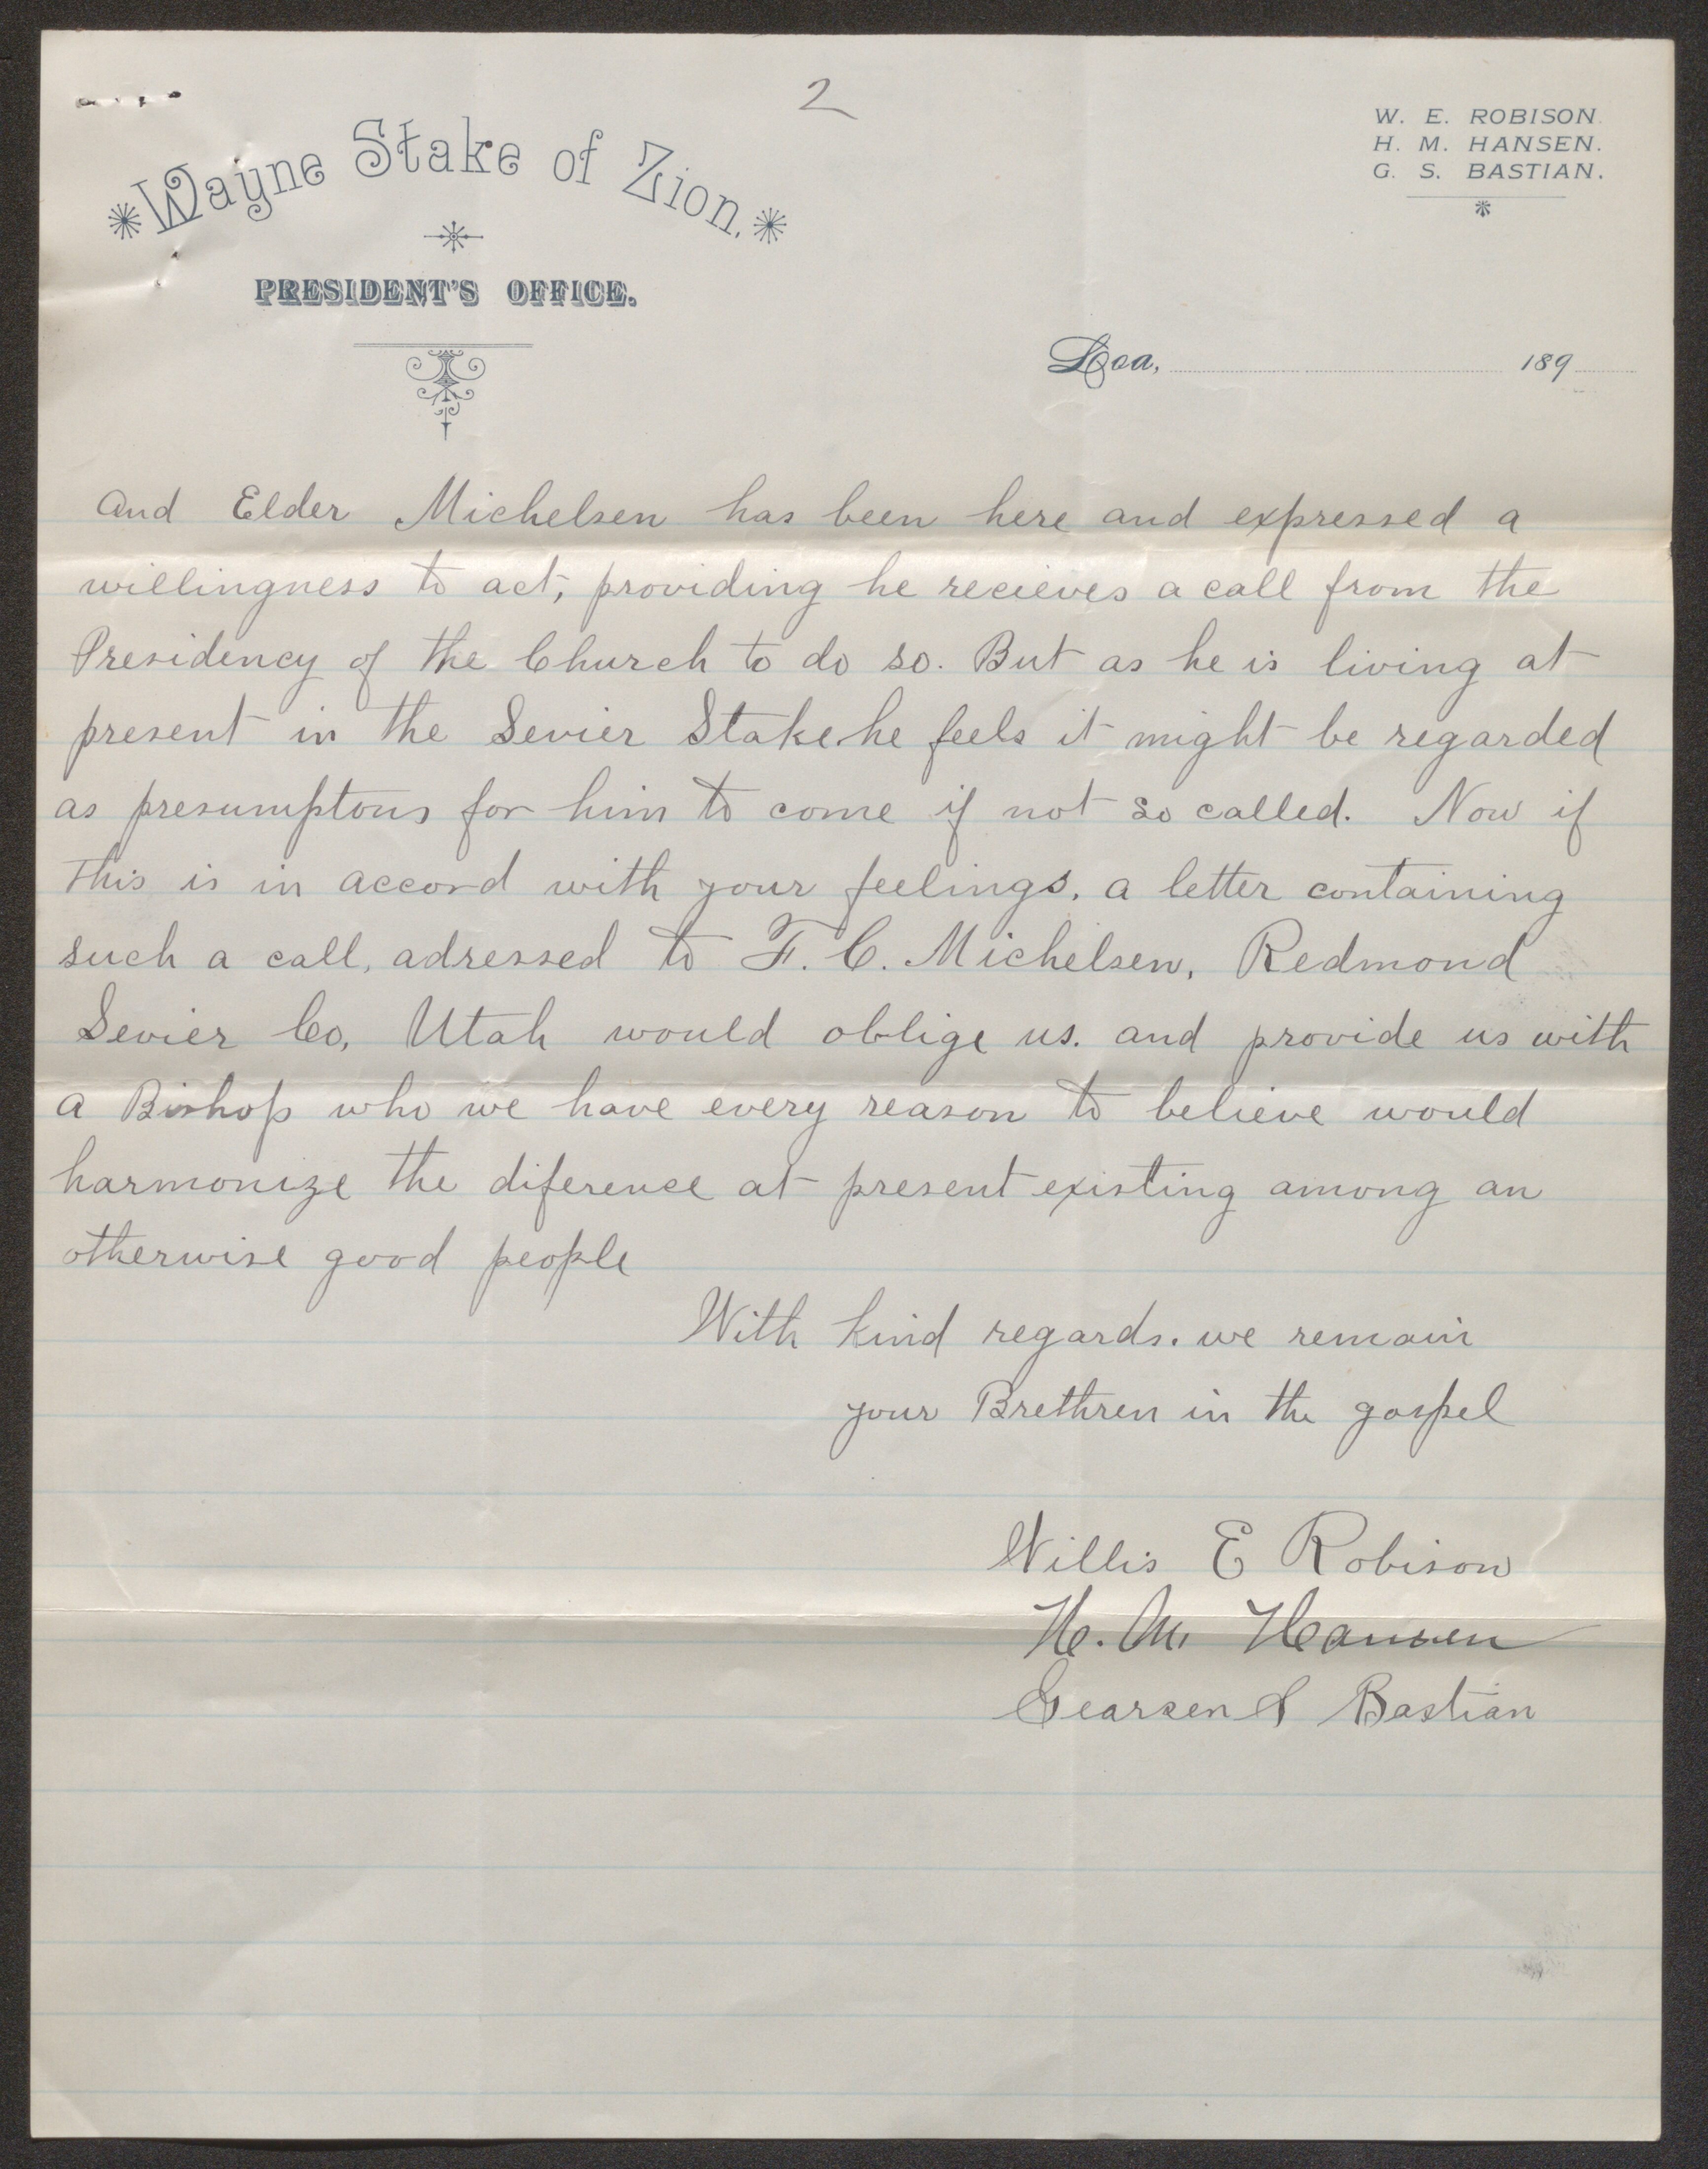 2
Wayne Stake of Zion.
PRESIDENT'S OFFICE.
W. E. ROBISON.
H. M. HANSEN.
G. S. BASTIAN.
Loa, 189
And Elder Michelsen has been here and expressed a
willingness to act, providing he recieves a call from the
Presidency of the Church to do so. But as he is living at
present in the Sevier Stake he feels it might be regarded
as presumptous for him to come if not so called. Now if
this is in accord with your feelings, a letter containing
such a call, adressed to F. C. Michelsen, Redmond
Sevier Co, Utah would oblige us. and provide us with
a Bishop who we have every reason to believe would
harmonize the diference at present existing among an
otherwise good people
With kind regards. we remain
your Brethren in the gospel
Willis E Robison
H. M. Hansen
Gearsen S Bastian